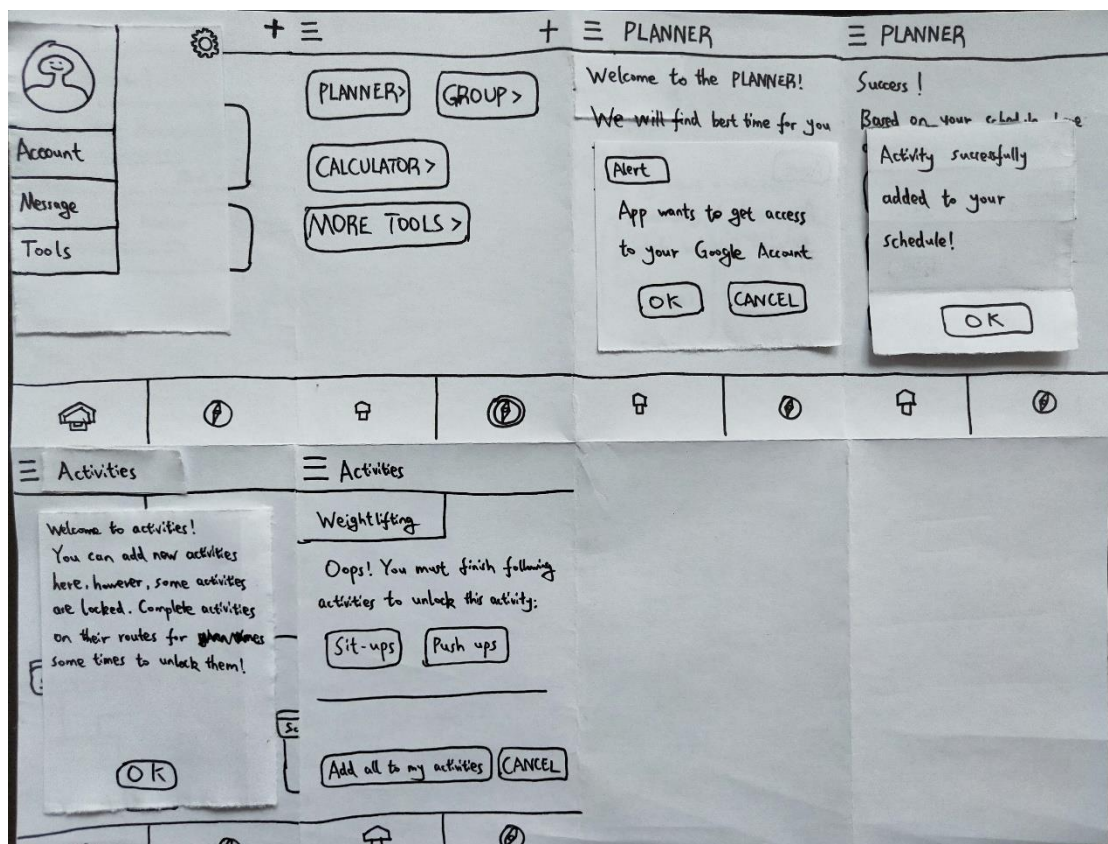 Account
Message
Tools
+
PLANNER>
GROUP >
CALCULATOR >
MORE TOOLS >
+
PLANNER
Welcome to the PLANNER!
We will find best time for you
Alert
App wants to get access
to your Google Account
OK
CANCEL
PLANNER
Success!
Based on your
Activity successfully
added to your
schedule!
OK
Activities
Welcome to activities!
You can add new activities
here, however, some activities
are locked. Complete activities
on their routes for
some times to unlock them!
OK
Activities
Weightlifting
Oops! You must finish following
activities to unlock this activity:
Sit-ups
Push ups
Add all to my activities
CANCEL